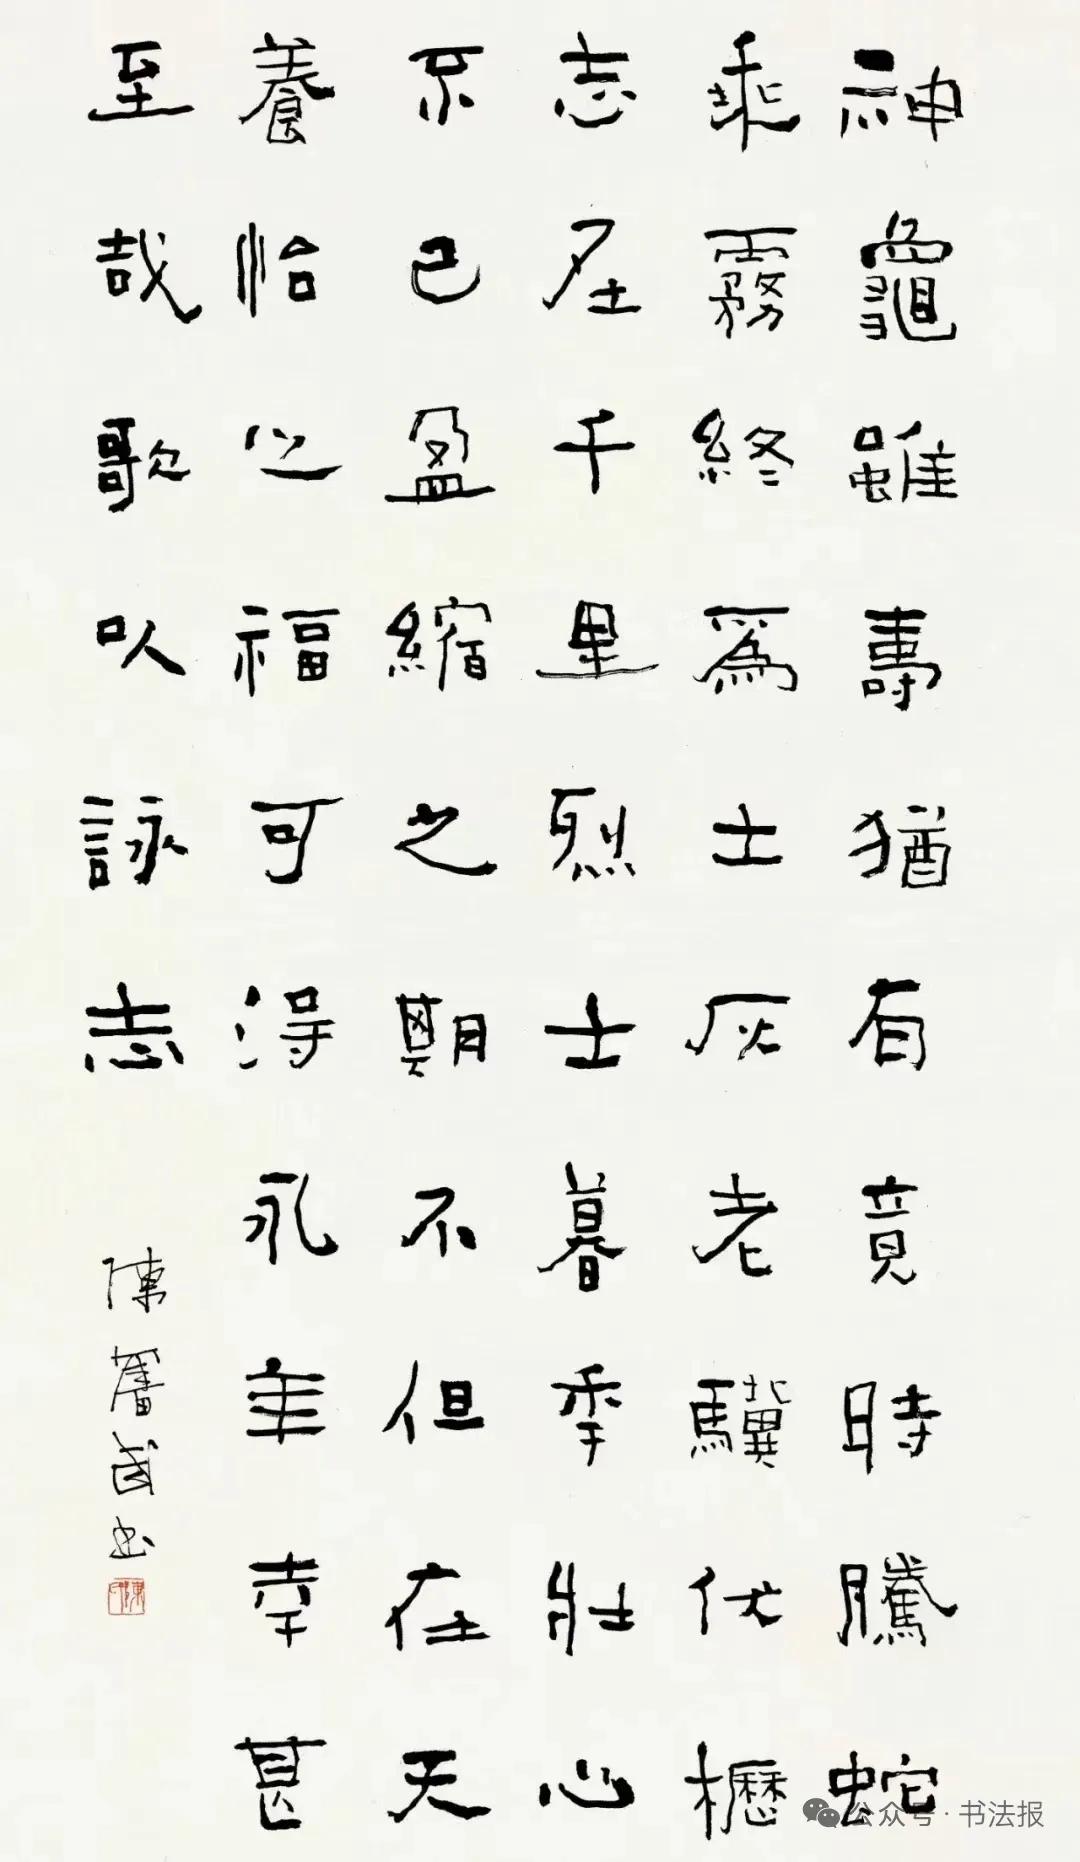 神龜雖壽猶有竟時騰蛇
乘霧終爲土灰老驥伏櫪
志在千里烈士暮年壯心
不已盈縮之期不但在天
養怡之福可得永年幸甚
至哉歌以詠志
陳國书
公众号·书法报